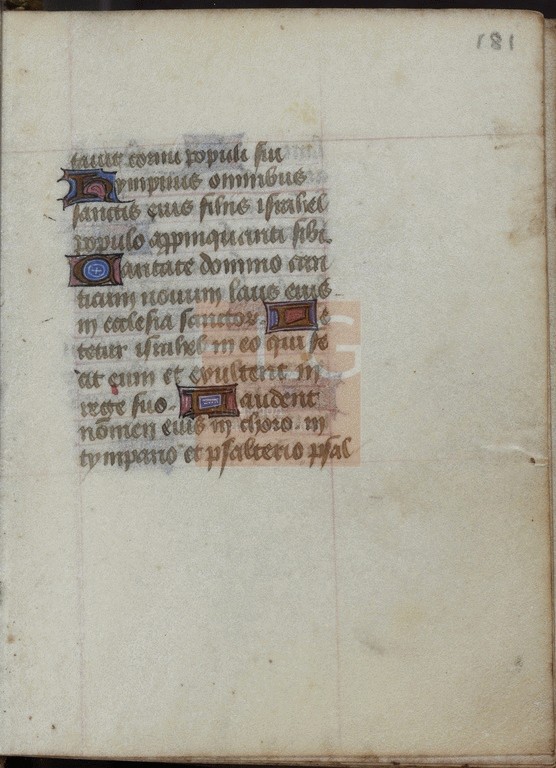 181
tauit cornu populi sui
Hympnus omnibus
sanctis eius filiis israhel
populo appinquanti sibi.
Cantate domino can
ticum nouum laus eius
in ecclesia sanctor Le
tetur israhel in eo qui fe
cit eum et exultent in
rege suo. Laudent
nomen eius in choro. in
tympano et psalterio psal